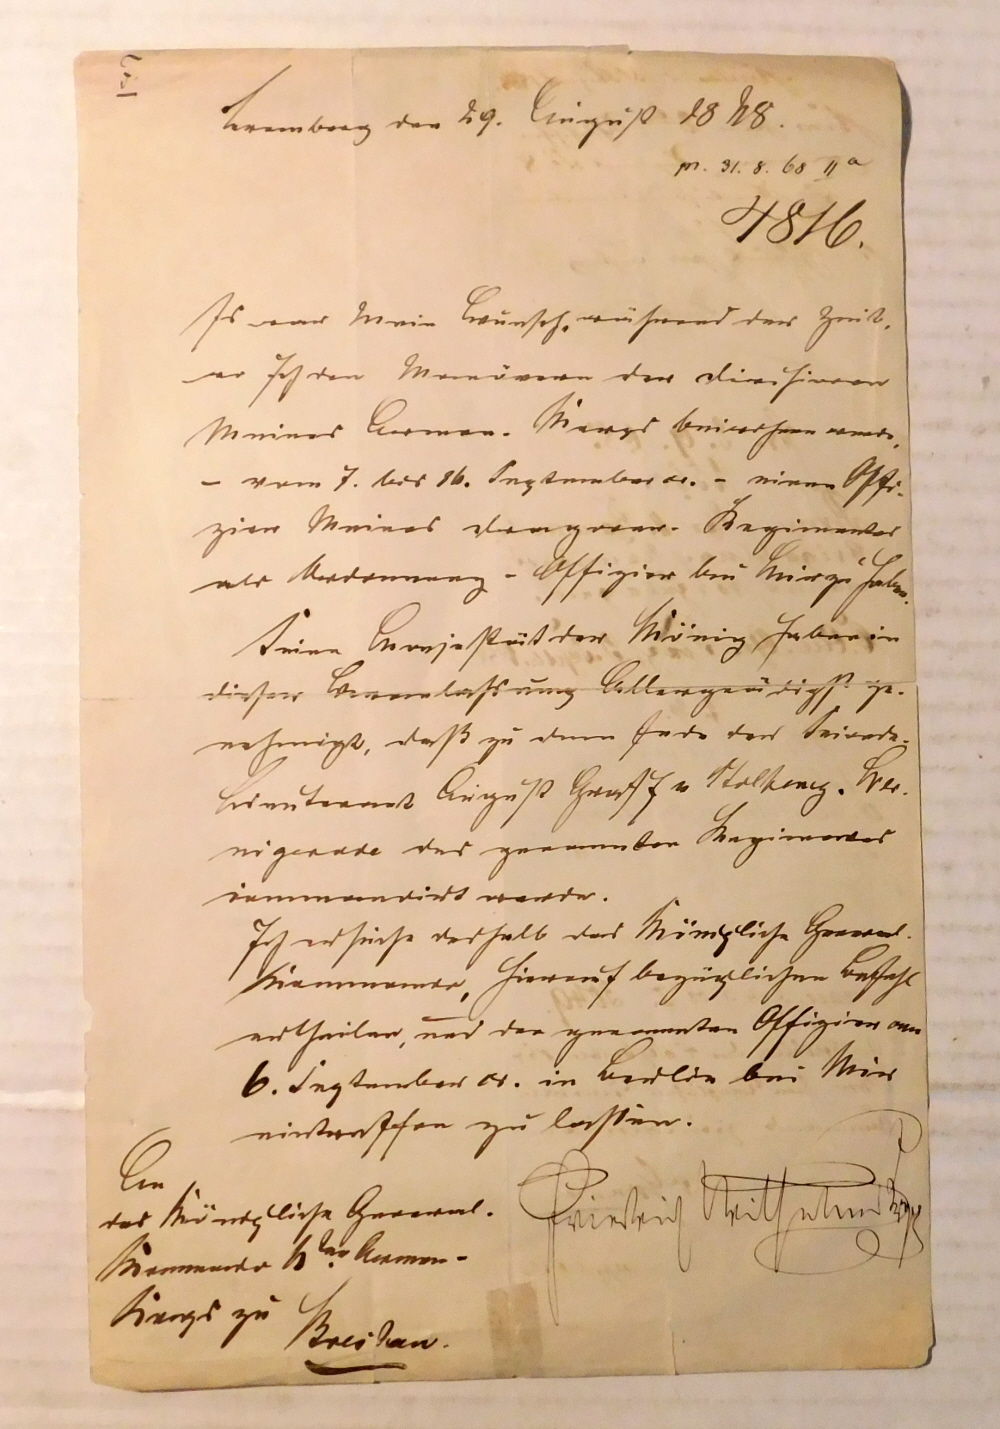 den 29. August 1868.
pr. 31. 8. 68 IIa
4816.
Es war Mein Wunsch, während der Zeit,
wo Ich den Manövern der Divisionen
Meines Armee-Korps beiwohnen werde,
– vom 7. bis 16. September cr. – einen Offi-
zier Meines Dragoner-Regimentes
als Ordonnanz-Offizier bei Mir zu haben.
Seine Majestät der König haben in
dieser Veranlassung Allergnädigst ge-
nehmigt, daß zu dem Ende der Seconde-
Lieutenant August Graf v Stolberg-Wer-
nigerode des genannten Regimentes
commandirt werde.
Ich ersuche deshalb das Königliche General-
Kommando, hierauf bezüglichen Befehl
ertheilen, und den genannten Offizier am
6. September cr. in Berlin bei Mir
eintreffen zu lassen.
Friedrich Wilhelm Krpz
An
das Königliche General-
Kommando Armee-
Korps zu
Breslau.